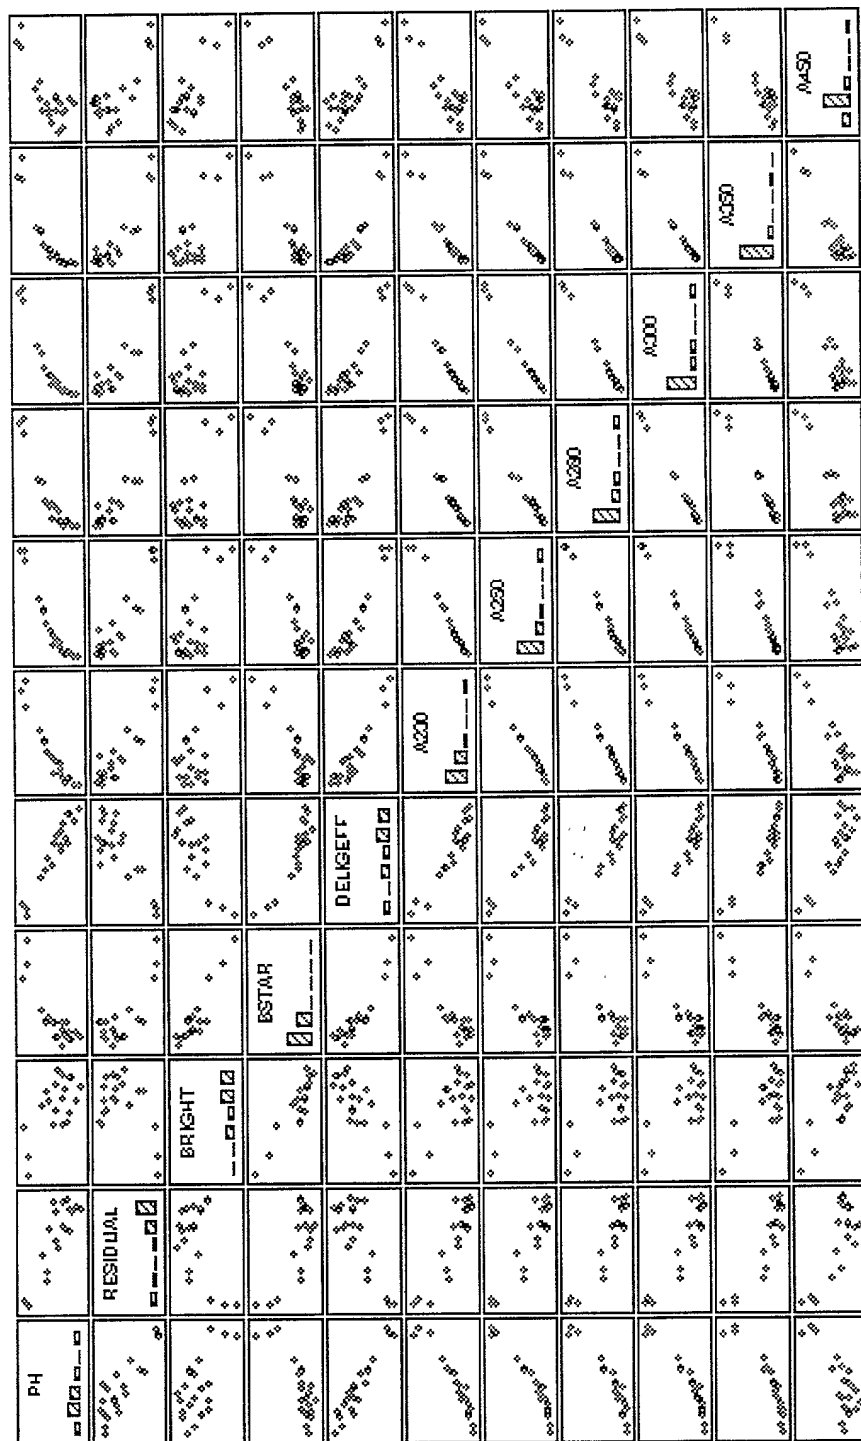 PH
RESIDUAL
BRIGHT
BSTAR
DELIGEFF
A230
A250
A280
A350
A450